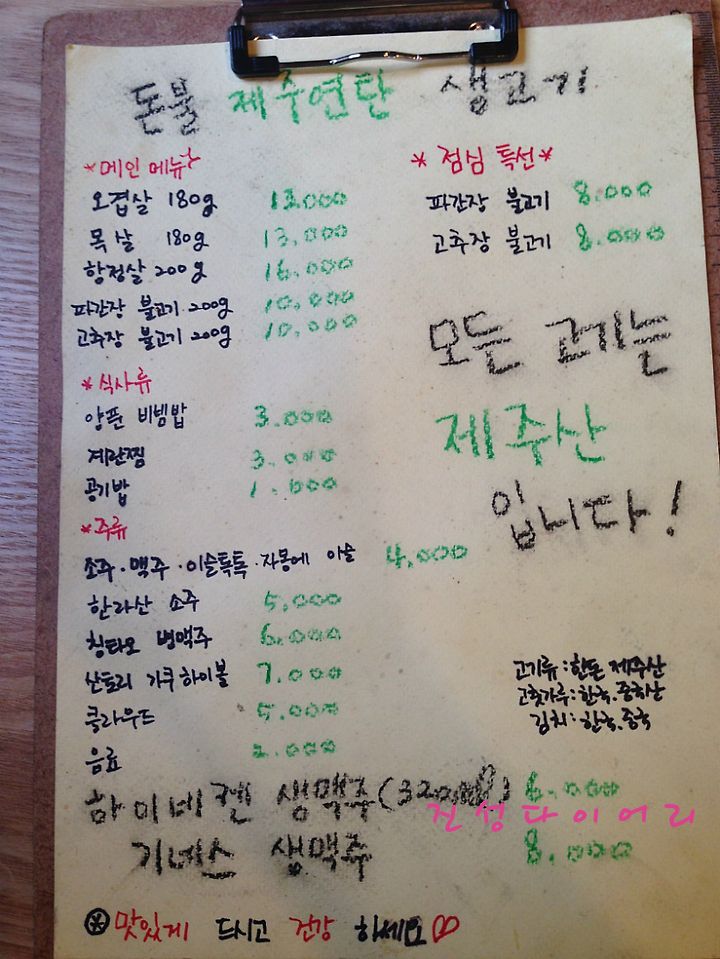 돈불 제주연탄 생고기
*메인 메뉴
오겹살 180g 13.000
목살 180g 13.000
항정살 200g 16.000
파간장 불고기 200g 10.000
고추장 불고기 200g 10.000
*식사류
양푼 비빔밥 3.000
계란찜 3.000
공기밥 1.000
*주류
소주·맥주·이슬톡톡·자몽에 이슬 4.000
한라산 소주 5.000
칭타오 병맥주 6.000
산토리 가쿠하이볼 7.000
클라우드 5.000
음료 2.000
하이네켄 생맥주(320ml) 6.000
기네스 생맥주 8.000
* 점심 특선*
파간장 불고기 8.000
고추장 불고기 8.000
모든 고기는
제주산
입니다!
고기류:한돈 제주산
고춧가루:한국.중국산
김치:한국.중국
진성다이어리
※맛있게 드시고 건강 하세요♡